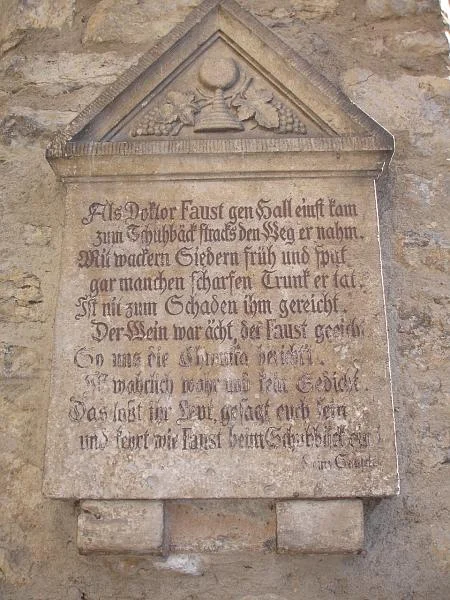 Als Doktor Faust gen Hall einst kam
zum Schuhbäck stracks den Weg er nahm.
Mit wackern Siedern früh und spat
gar manchen scharfen Trunk er tat.
Ist nit zum Schaden ihm gereicht.
Der Wein war ächt, der Faust geeicht.
So uns die Chronica bericht't.
Ist wahrlich wahr und kein Gedicht.
Das laßt ihr Leut, gesagt euch sein
und kehrt wie Faust beim Schuhbäck ein